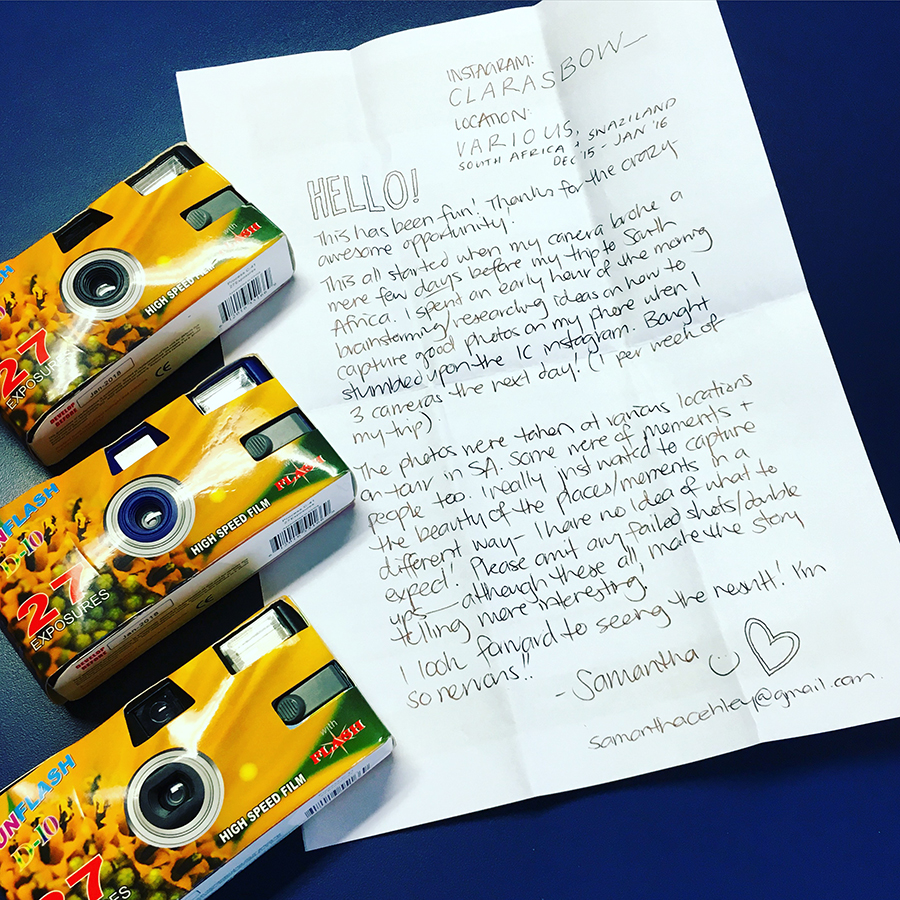 INSTAGRAM:
CLARASBOW_
LOCATION:
VARIOUS,
SOUTH AFRICA + SWAZILAND
DEC '15 - JAN '16
HELLO!
This has been fun! Thanks for the crazy
awesome opportunity!
This all started when my camera broke a
mere few days before my trip to South
Africa. I spent an early hour of the morning
brainstorming/researching ideas on how to
capture good photos on my phone when I
stumbled upon the IC instagram. Bought
3 cameras the next day! (1 per week of
my trip).
The photos were taken at various locations
on tour in SA. Some were of moments +
people too. I really just wanted to capture
the beauty of the places/moments in a
different way - I have no idea of what to
expect! Please omit any failed shots/double
ups - although these all make the story
telling more interesting.
I look forward to seeing the result! I'm
so nervous!!
- Samantha
samanthacehley@gmail.com
with
FLASH
HIGH SPEED FILM
27
EXPOSURES
DEVELOP
BEFORE
Jan-2018
CE
UNFLASH
D-10
FLASH
HIGH SPEED FILM
27
EXPOSURES
DEVELOP
BEFORE
Jan-2018
CE
UNFLASH
D-10
with
FLASH
HIGH SPEED FILM
27
EXPOSURES